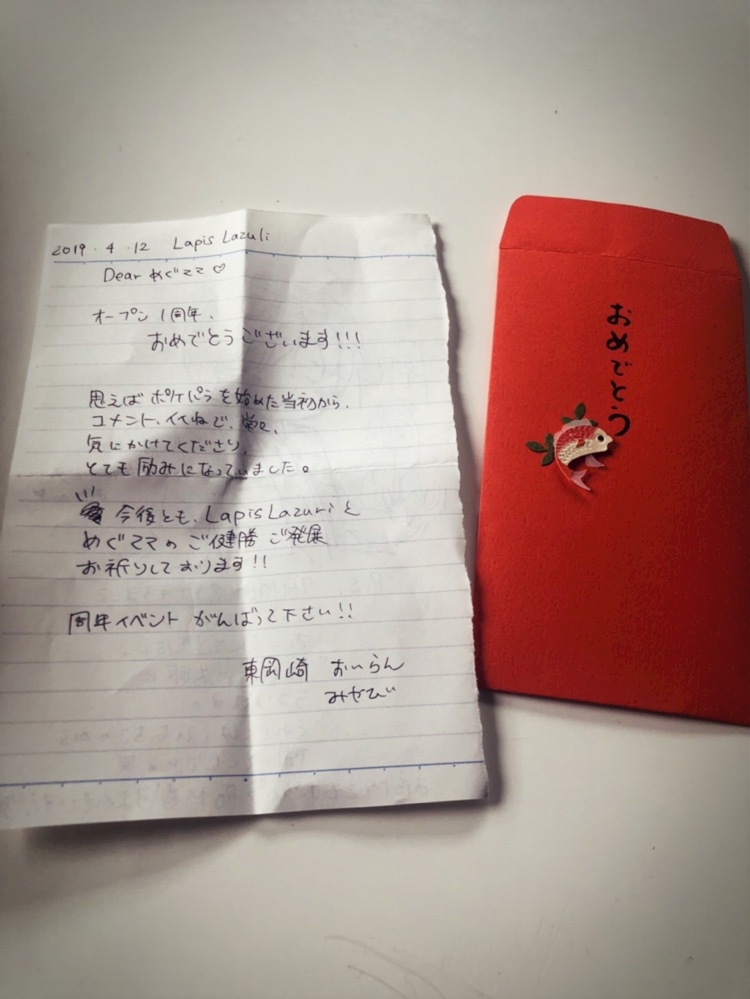 2019.4.12 Lapis Lazuli
Dear めぐママ♡
オープン1周年、
おめでとうございます!!!
思えばポケパラを始めた当初から、
コメント、イイねで、常に、
気にかけてくださり、
とても励みになっていました。
今後とも、Lapis Lazuriと
めぐママのご健勝ご発展
お祈りしております!!
周年イベントがんばって下さい!!
東岡崎 おいらん
みやび
おめでとう